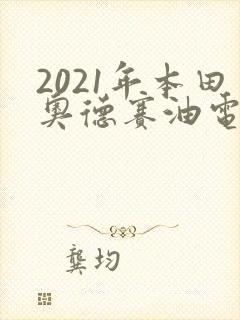 2021年本田
奥德赛油电
龚均